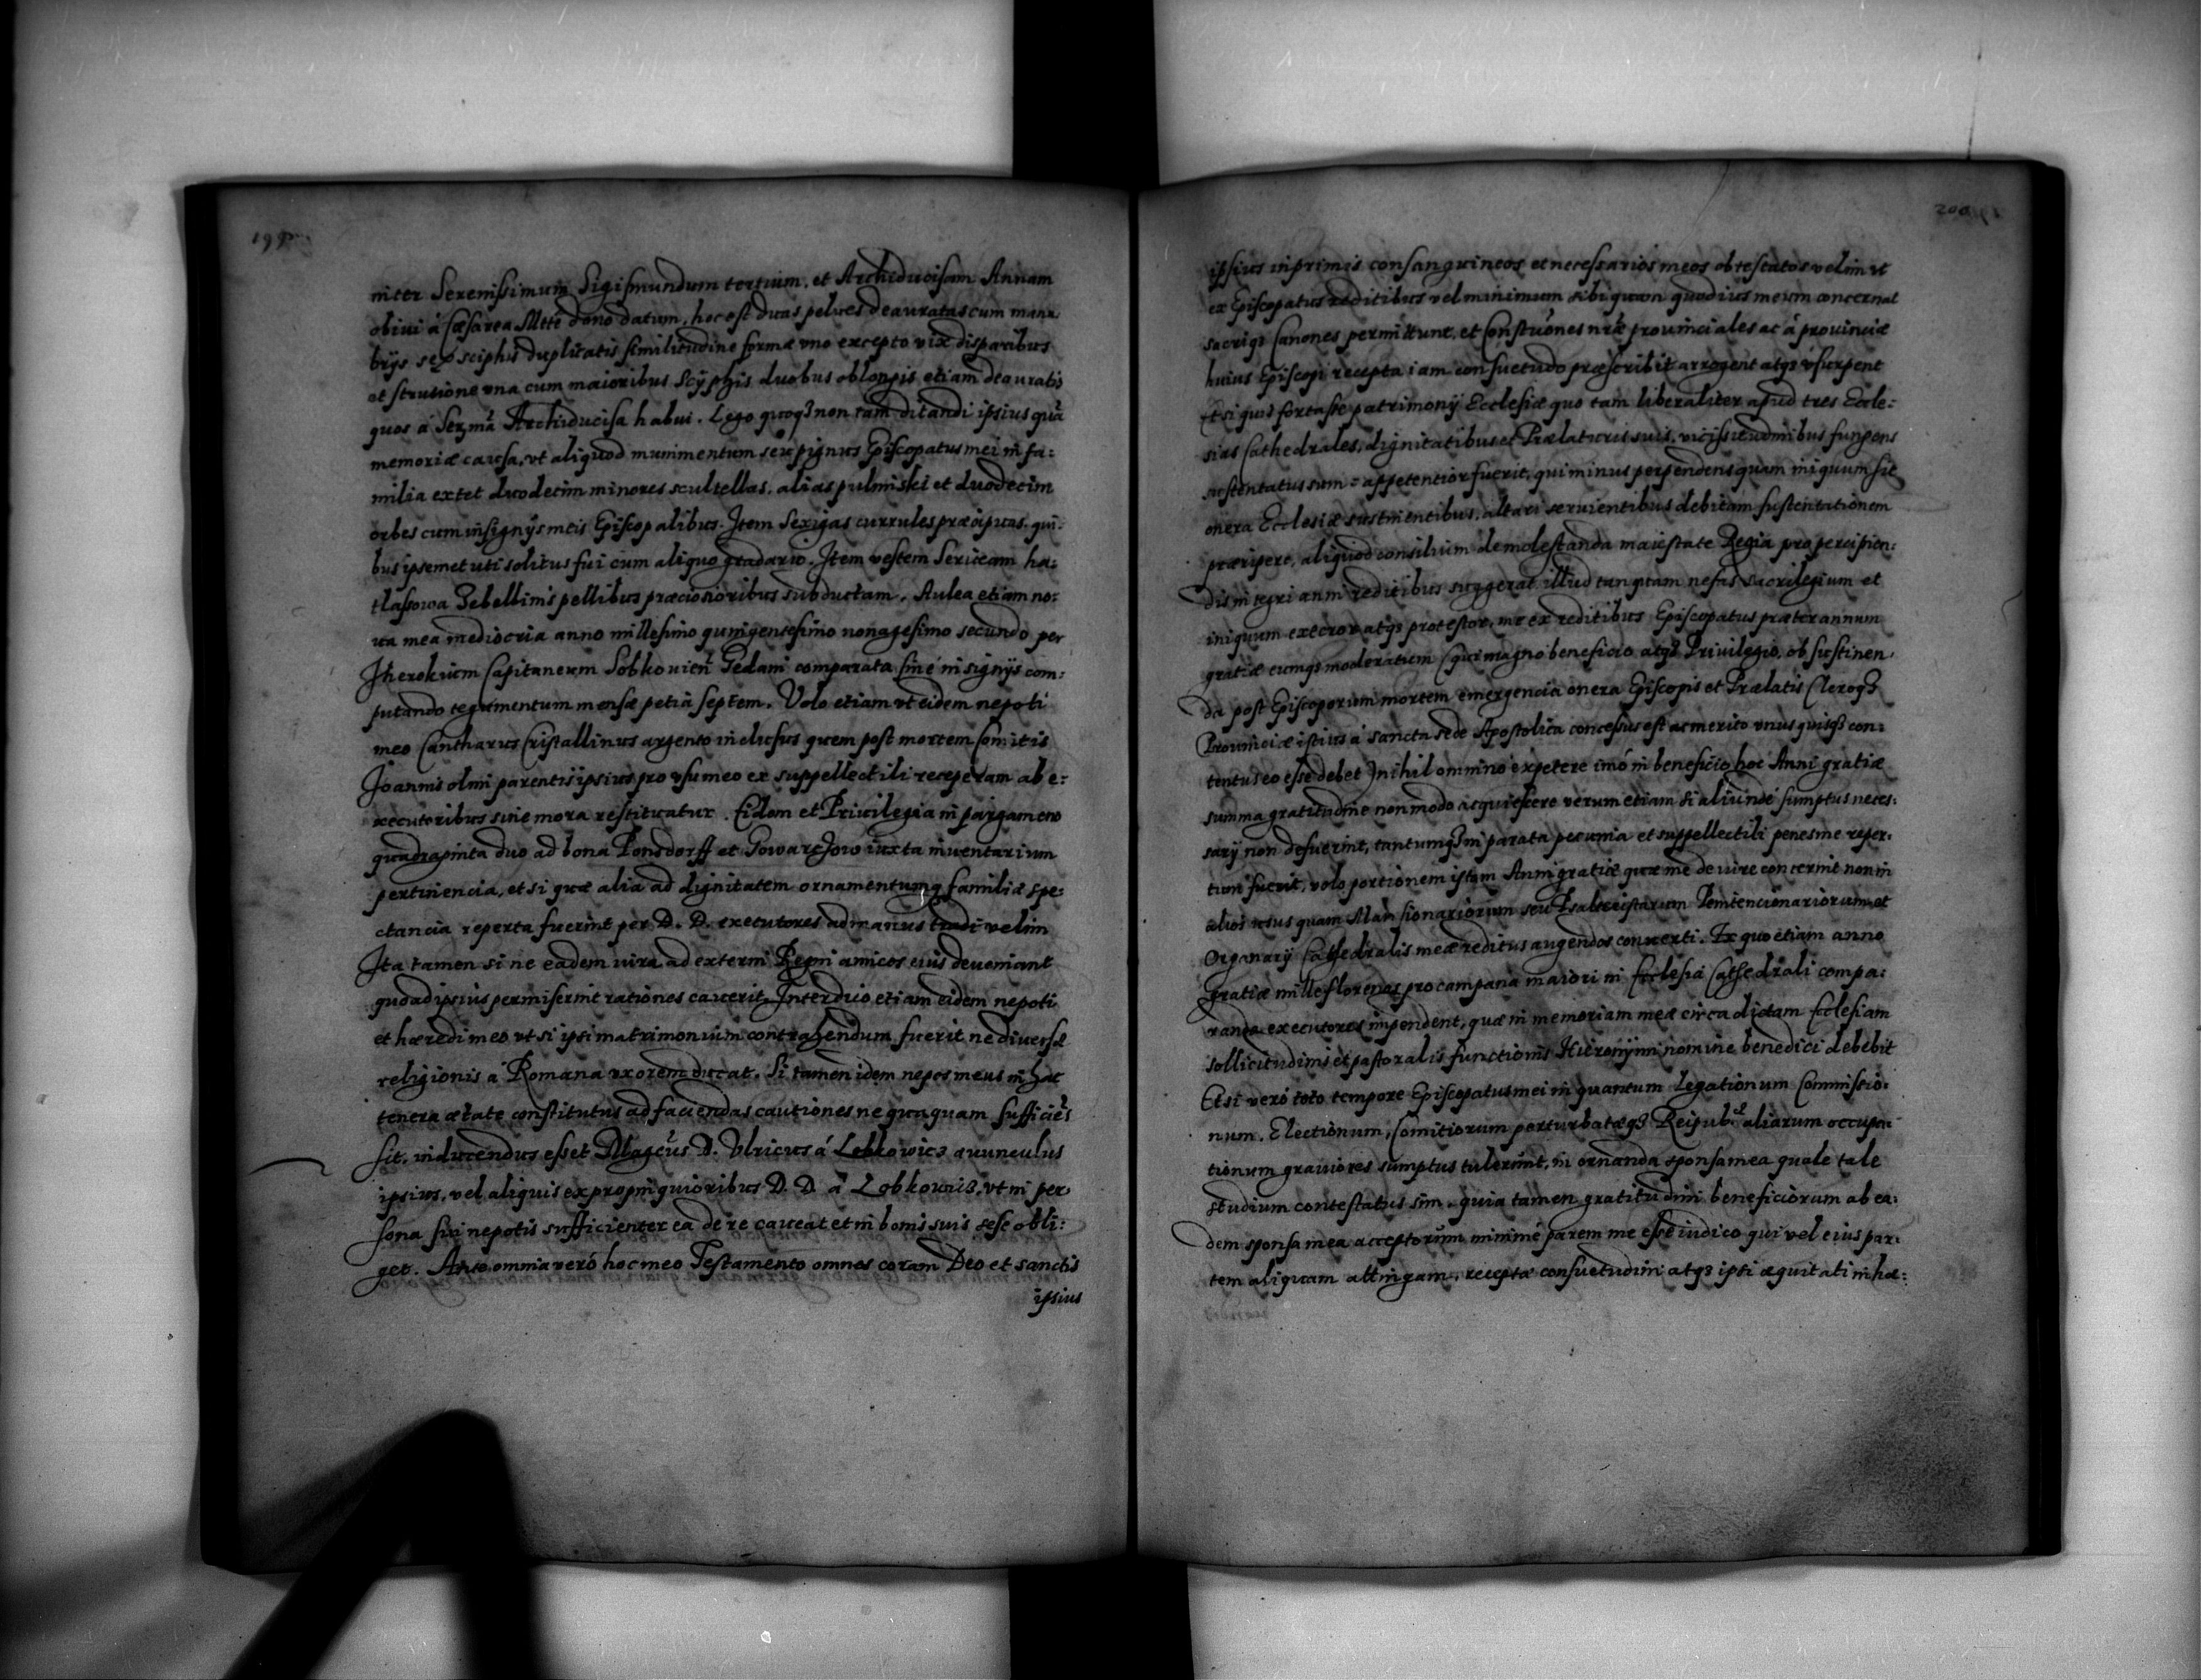 199
niter Serenissimum Sigismundum tertium, et Archiducisam Annam
obiui á Cæsarea Mtte dono datum, hoc est duas pelues deauratas cum manu
brijs sex sciphis duplicatis similitudine formæ vno excepto vix disparibus
et structione vna cum maioribus Scÿphis duobus oblongis etiam deauratis
quos á Serma Archiducisa habui. Lego quoqꝫ non tam ditandi ipsius quã
memoriæ causa, vt aliquod munimentum seu pignus Episcopatus mei in fa:
milia extet duodecim minores scultellas, alias pulmiski et duodecim
orbes cum insignijs meis Episcopalibus. Item Sexigas currules præcipuas, qui:
bus ipsemet uti solitus fui cum aliquo gradario. Item vestem Sericeam ha:
tlasowa Zebellinis pellibus præciosioribus subductam. Aulea etiam no:
ua mea mediocria anno millesimo quingentesimo nonagesimo secundo per
Capitaneum Sobkouien̄ Gedani comparata sine insignijs com:
putando tegumentum mensæ petia septem. Volo etiam vt eidem nepoti
meo Cantharus Cristallinus argento inclusus quem post mortem Comitis
Joannis olim parentis ipsius pro vsu meo ex suppellectili receperam ab e:
xecutoribus sine mora restituatur. Eidem et Priuilegia in pargameno
quadraginta duo ad bona Ponsdorff et iuxta inuentarium
pertinencia, et si quæ alia ad dignitatem ornamentumq familiæ spe:
ctancia reperta fuerint per D. D. executores ad manus tradi velim
Ita tamen si ne eadem vira ad externi Regni amicos eius deueniant
quoad ipsius permiserint rationes cauerit. Interdico etiam eidem nepoti
et hæredi meo vt si ipsi matrimonium contrahendum fuerit ne diuersæ
religionis a Romana vxorem ducat. Si tamen idem nepos meus in hac
tenera ætate constitutus ad faciendas cautiones ne quaquam sufficiẽs
sit, inducendus esset Magcus D. Vlricus á Lobkowicz auunculus
ipsius, vel aliquis ex propinquioribus D. D. á Lobkouicz, vt in per
sona sui nepotis sufficienter ea de re caueat et in bonis suis sese obli:
get. Ante omnia veró hoc meo Testamento omnes coram Deo et sanctis
ipsius
200
ipsius inprimis consanguineos et necessarios meos obtestatos velim vt
ex Episcopatus reditibus vel minimum sibi quam quod ius meum concernat
sacriqꝫ Canones permittunt, et Constuones nrae prouinciales ac á prouinciæ
huius Episcopi recepta iam consuetudo præscribit arrogent atqꝫ vsurpent
Et si quis fortasse patrimonij Ecclesiæ quo tam liberaliter apud tres Eccle:
sias Cathedrales, dignitatibus et Prælaturis suis, vicissitudinibus fungens
sustentatus sum = appetentior fuerit, qui minus perpendens quam iniquum sit
onera Ecclesiæ sustinentibus, altari seruientibus debitam sustentationem
præripere, aliquod consilium de molestanda maiestate Regia pro percipien:
dis integri anni reditibus suggerat illud tanquam nefas sacrilegium et
iniquum execror atqꝫ protestor, me ex reditibus Episcopatus præter annum
gratiæ eumqꝫ moderatum (qui magno beneficio atqꝫ Priuilegio, ob sustinen,
da post Episcoporum mortem emergencia onera Episcopis et Prælatis Cleroqꝫ
Prouinciæ istius á sancta sede Apostolica concessus est ac merito vnusquisqꝫ con:
tentus eo esse debet) nihil omnino expetere imó in beneficio hoc Anni gratiæ
summa gratitudine non modo acquiescere verum etiam si aliunde sumptus neces:
sarij non defuerint, tantumqꝫ in parata pecunia et suppellectili penes me reper:
tum fuerit, volo portionem istam Anni gratiæ quæ me de iure concernit non in
alios vsus quam Mansionariorum seu Psalteristarum Penitencionariorum et
Organarij Cathedralis meæ reditus augendos conuerti. Ex quo etiam anno
gratiæ mille florenos pro campana maiori in Ecclesia Cathedrali compa:
randa executores impendent, quæ in memoriam meæ circa dictam Ecclesiam
sollicitudinis et pastoralis functionis Hieronÿmi nomine benedici debebit
Etsi veró toto tempore Episcopatus mei in quantum Legationum Commissio:
num, Electionum, Comitiorum perturbatæqꝫ Reipub. et aliarum occupa:
tionum grauiores sumptus tulerunt, in ornanda sponsa mea quale tale
studium contestatus sim, quia tamen gratitudini beneficiorum ab ea:
dem sponsa mea acceptorum minimé parem me esse iudico qui vel eius par:
tem aliquam attingam, receptæ consuetudini atqꝫ ipsi æquitati inhæ: